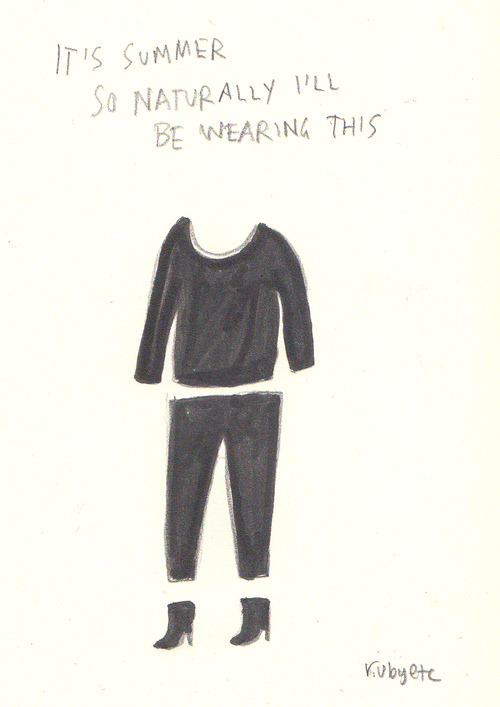 IT'S SUMMER
SO NATURALLY I'LL
BE WEARING THIS
rubyetc